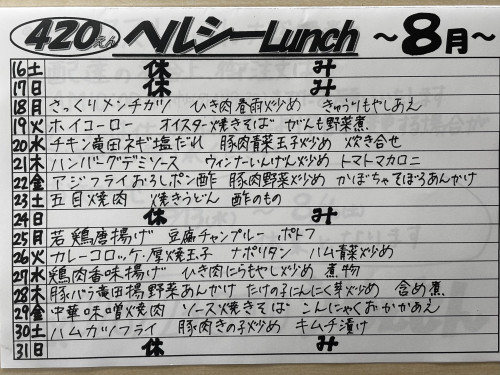 420えん ヘルシーLunch ～8月～
16土 休み
17日 休み
18月 さっくりメンチカツ ひき肉春雨炒め きゅうりもやしあえ
19火 ホイコーロー オイスター焼きそば がんも野菜煮
20水 チキン竜田ネギ塩だれ 豚肉青菜玉子炒め 炊き合せ
21木 ハンバーグデミソース ウィンナーいんげん炒め トマトマカロニ
22金 アジフライおろしポン酢 豚肉野菜炒め かぼちゃそぼろあんかけ
23土 五目焼肉 焼きうどん 酢のもの
24日 休み
25月 若鶏唐揚げ 豆腐チャンプルー ポトフ
26火 カレーコロッケ・厚焼玉子 ナポリタン ハム青菜炒め
27水 鶏肉香味揚げ ひき肉にらもやし炒め 煮物
28木 豚バラ竜田揚野菜あんかけ たけの子にんにく芽炒め 含め煮
29金 中華味噌焼肉 ソース焼きそば こんにゃくおかかあえ
30土 ハムカツフライ 豚肉きの子炒め キムチ漬け
31日 休み